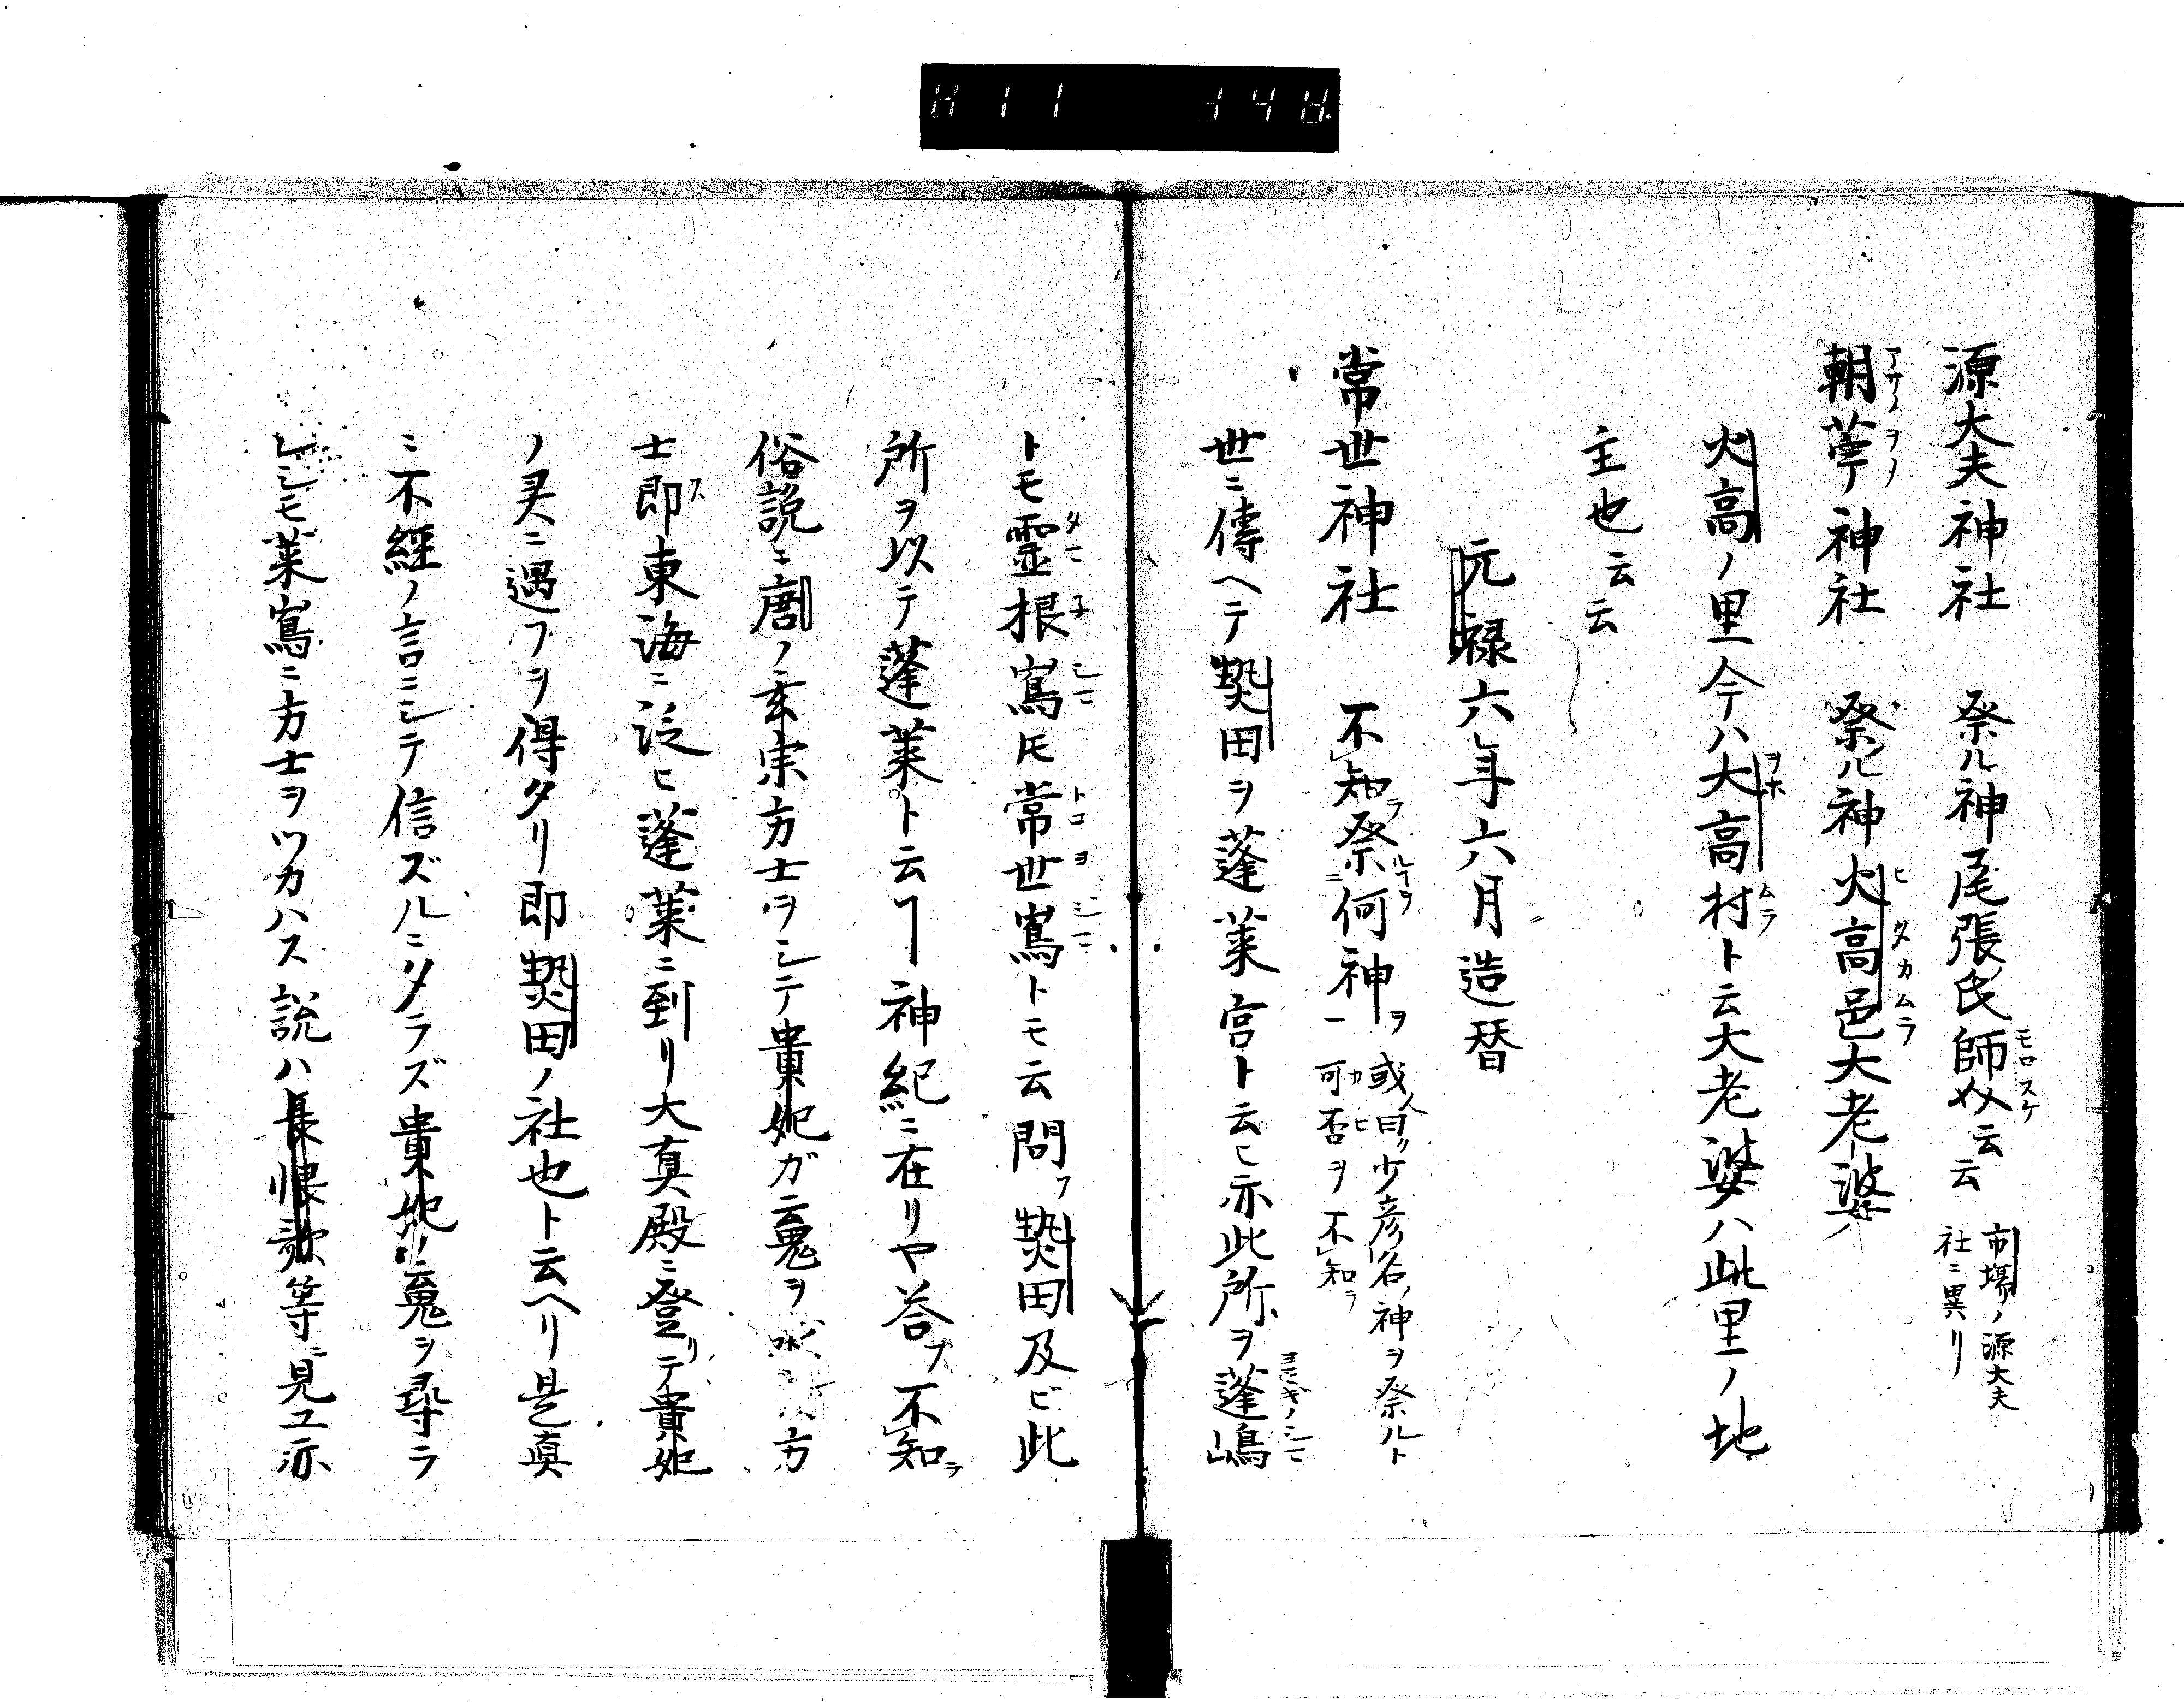 源大夫神社　祭ル神尾張氏師介云云　市場ノ源大夫
社ニ異リ
朝苧神社　祭ル神火高邑大老婆
火高ノ里今ハ大高村ト云大老婆ハ此里ノ地
主也云云
元禄六年六月造替
常世神社　不知祭何神ヲ　或人曰ク少彦名ノ神ヲ祭ルト
可否ヲ不知ラ
世ニ傳ヘテ熱田ヲ蓬莱宮ト云ヒ亦此所ヲ蓬嶋
トモ霊根嶌トモ常世嶌トモ云問フ熱田及ビ此
所ヲ以テ蓬莱ト云ヿ神紀ニ在リヤ答フ不知ラ
俗説ニ唐ノ玄宗方士ヲシテ貴妃ガ䰟ヲ 方
士即東海ニ泛ヒ蓬莱ニ到リ大真殿ニ登リテ貴妃
ノ灵ニ遇フヲ得タリ即熱田ノ社也ト云ヘリ是真
ニ不經ノ言ニシテ信ズルニタラズ貴妃ノ䰟ヲ尋ラ
レシモ莱嶌ニ方士ヲツカハス説ハ長恨歌等ニ見エ亦